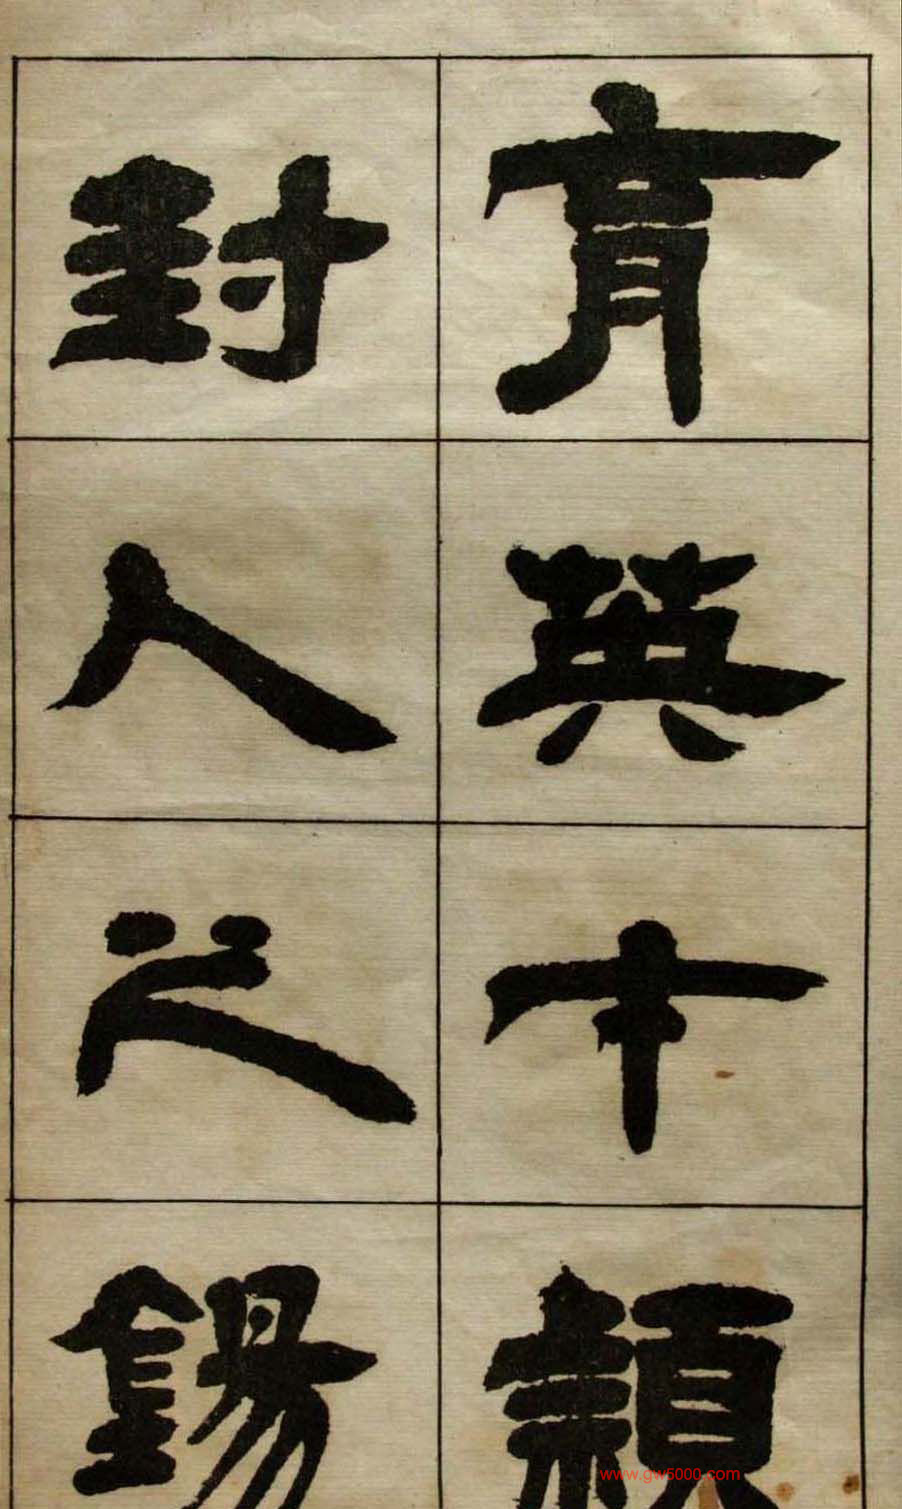 育英才頴
封人之錫
www.gw5000.com